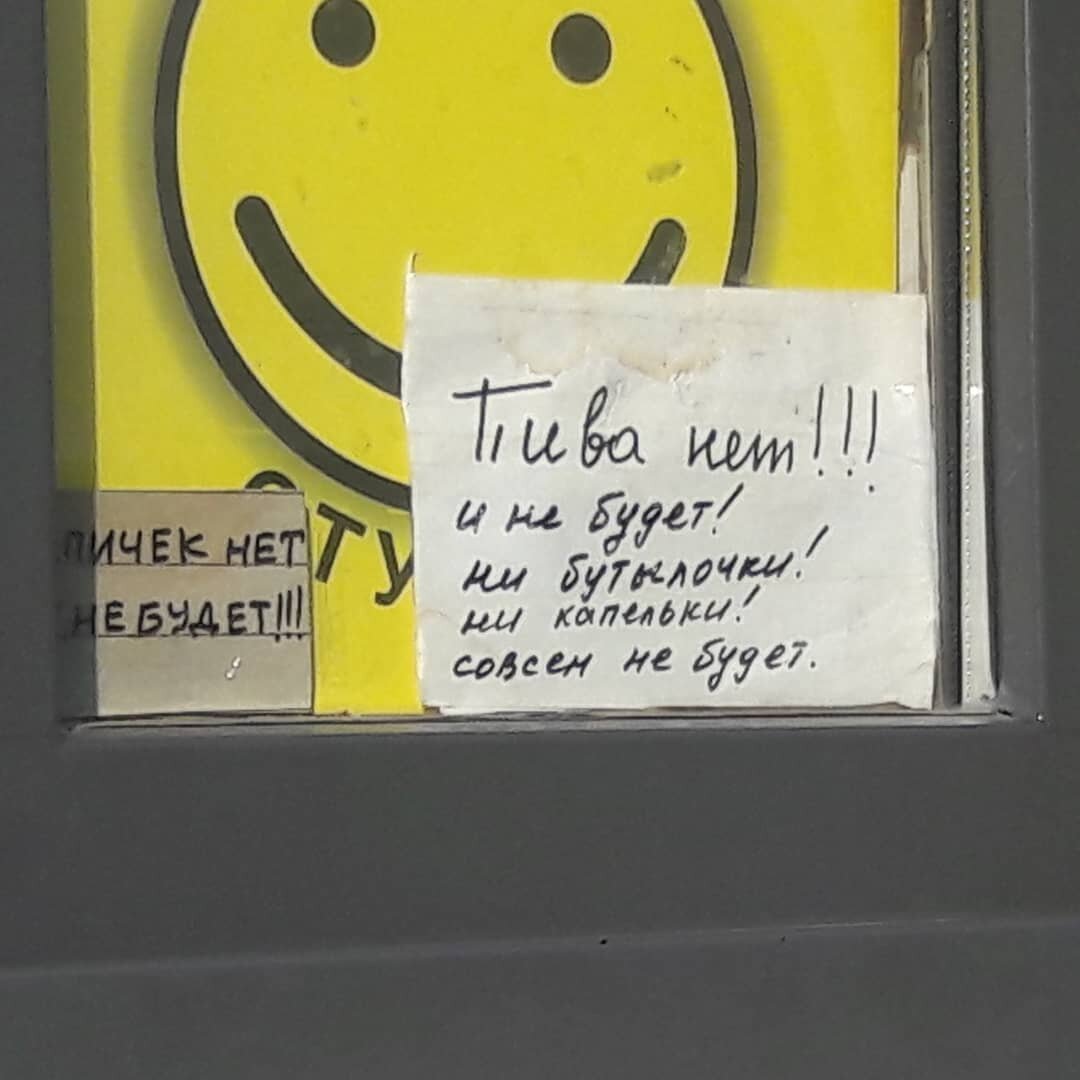 Пива нет!!!
и не будет!
ни бутылочки!
ни капельки!
совсем не будет.
ПИЧЕК НЕТ
НЕ БУДЕТ!!!
СТУ